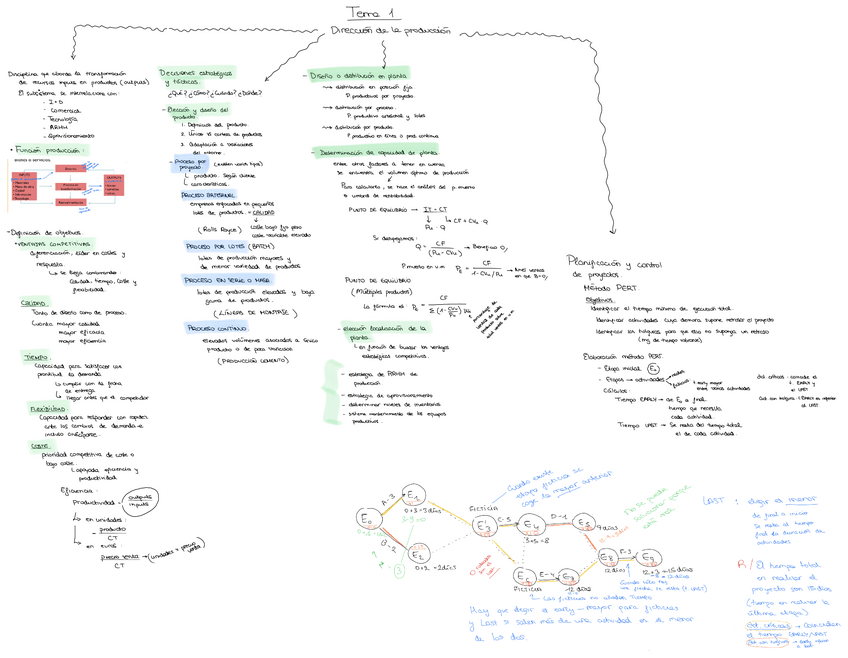 Tema 1
Dirección de la producción
Disciplina que aborda la transformación
de recursos inputs en productos (outputs)
El subsistema se interrelaciona con:
- I+D
- Comercial
- Tecnología
- RRHH
- Aprovisionamiento
• Función producción:
INPUTS
OUTPUTS
- Definición de objetivos.
• VENTAJAS COMPETITIVAS:
diferenciación, líder en costes y
respuesta.
Se basa combinando:
calidad, tiempo, coste y
flexibilidad.
CALIDAD:
Tanto de diseño como de proceso.
Cuanta mayor calidad
mayor eficacia
mayor eficiencia
TIEMPO:
Capacidad para satisfacer con
prontitud la demanda
↳ cumplir con la fecha
de entrega
↳ llegar antes que el competidor
FLEXIBILIDAD:
Capacidad para responder con rapidez
ante los cambios de demanda e
incluso anticiparse.
COSTE:
prioridad competitiva de coste o
bajo coste.
↳ apoyada eficiencia y
productividad
Eficiencia:
Productividad = outputs
inputs
↳ en unidades:
= producto
CT
↳ en euros:
precio venta → (unidades × precio venta)
CT
Decisiones estratégicas
y tácticas.
¿Qué? ¿Cómo? ¿Cuándo? ¿Dónde?
- Elección y diseño del
producto
1. Definición del producto.
2. Único vs cartera de productos
3. Adaptación a variaciones
del entorno.
- Proceso por
proyecto (existen varios tipos)
↳ producto según cliente
↳ características.
PROCESO ARTESANAL
empresas enfocadas en pequeños
lotes de productos. = CALIDAD
(Rolls Royce)
coste bajo fijo pero
coste variable elevado
PROCESO POR LOTES (BATCH)
lotes de producción mayores y
de menor variedad de productos
PROCESO EN SERIE O MASA
lotes de producción elevados y baja
gama de productos.
(LÍNEAS DE MONTAJE)
PROCESO CONTINUO.
elevados volúmenes asociados a único
producto o de poca variación
(PRODUCCIÓN CEMENTO)
- Diseño o distribución en planta
distribución en posición fija.
P. productivos por proyecto.
distribución por proceso.
P. productivo artesanal y lotes
distribución por producto.
P. productivo en línea o prod continua
- Determinación de capacidad de planta
entre otros factores a tener en cuenta
se encuentra el volumen óptimo de producción
Para calcularlo, se hace el análisis del p. muerto
o umbral de rentabilidad.
PUNTO DE EQUILIBRIO → IT = CT
Pu · Q
CF + CVu · Q
Si despejamos:
Q = CF / (Pu - CVu) → Beneficio 0,
P muerto en u.m PE = CF / 1 - CVu/Pu → nivel ventas en que B=0,
PUNTO DE EQUILIBRIO
(Múltiples productos)
La fórmula es: PE = CF
- elección localización de la
planta.
↳ en función de buscar las ventajas
estratégicas competitivas.
- estrategia de RRHH de
producción
- estrategia de aprovisionamiento
- determinar niveles de inventarios
- sistema mantenimiento de los equipos
productivos.
Planificación y control
de proyectos
Método PERT
Objetivos:
Identificar el tiempo mínimo de ejecución total.
Identificar actividades cuya demora supone retrasar el proyecto
Identificar las holguras para que eso no suponga un retraso
Elaboración método PERT
- Etapa inicial E0
- Etapas → actividades
reales
ficticias
Cálculos:
Tiempo EARLY → de E0 a final
tiempo que necesita
cada actividad
Tiempo LAST → Se resta del tiempo total
el de cada actividad.
Cuando existe
etapa ficticia se
coge la mayor anterior
E0
A-3
E1
0+3=3 días
B-2
E2
0+2=2 días
FICTICIA
E3
C-5
E4
3+5=8
D-1
E5
9 días
E6
E-4
E7
12 días
FICTICIA
E8
12 días
F-3
E9
12+3=15 días
Las ficticias no añaden tiempo
Hay que elegir el early → mayor para ficticias
y Last → salen más de una actividad en el menor
de las dos
LAST: elegir el menor
de final a inicio
se resta al tiempo
final la duración de
actividades
R/ El tiempo total
en realizar el
proyecto son 15 días
(tiempo en realizar la
última etapa)
Act críticas → coinciden
el tiempo EARLY/LAST